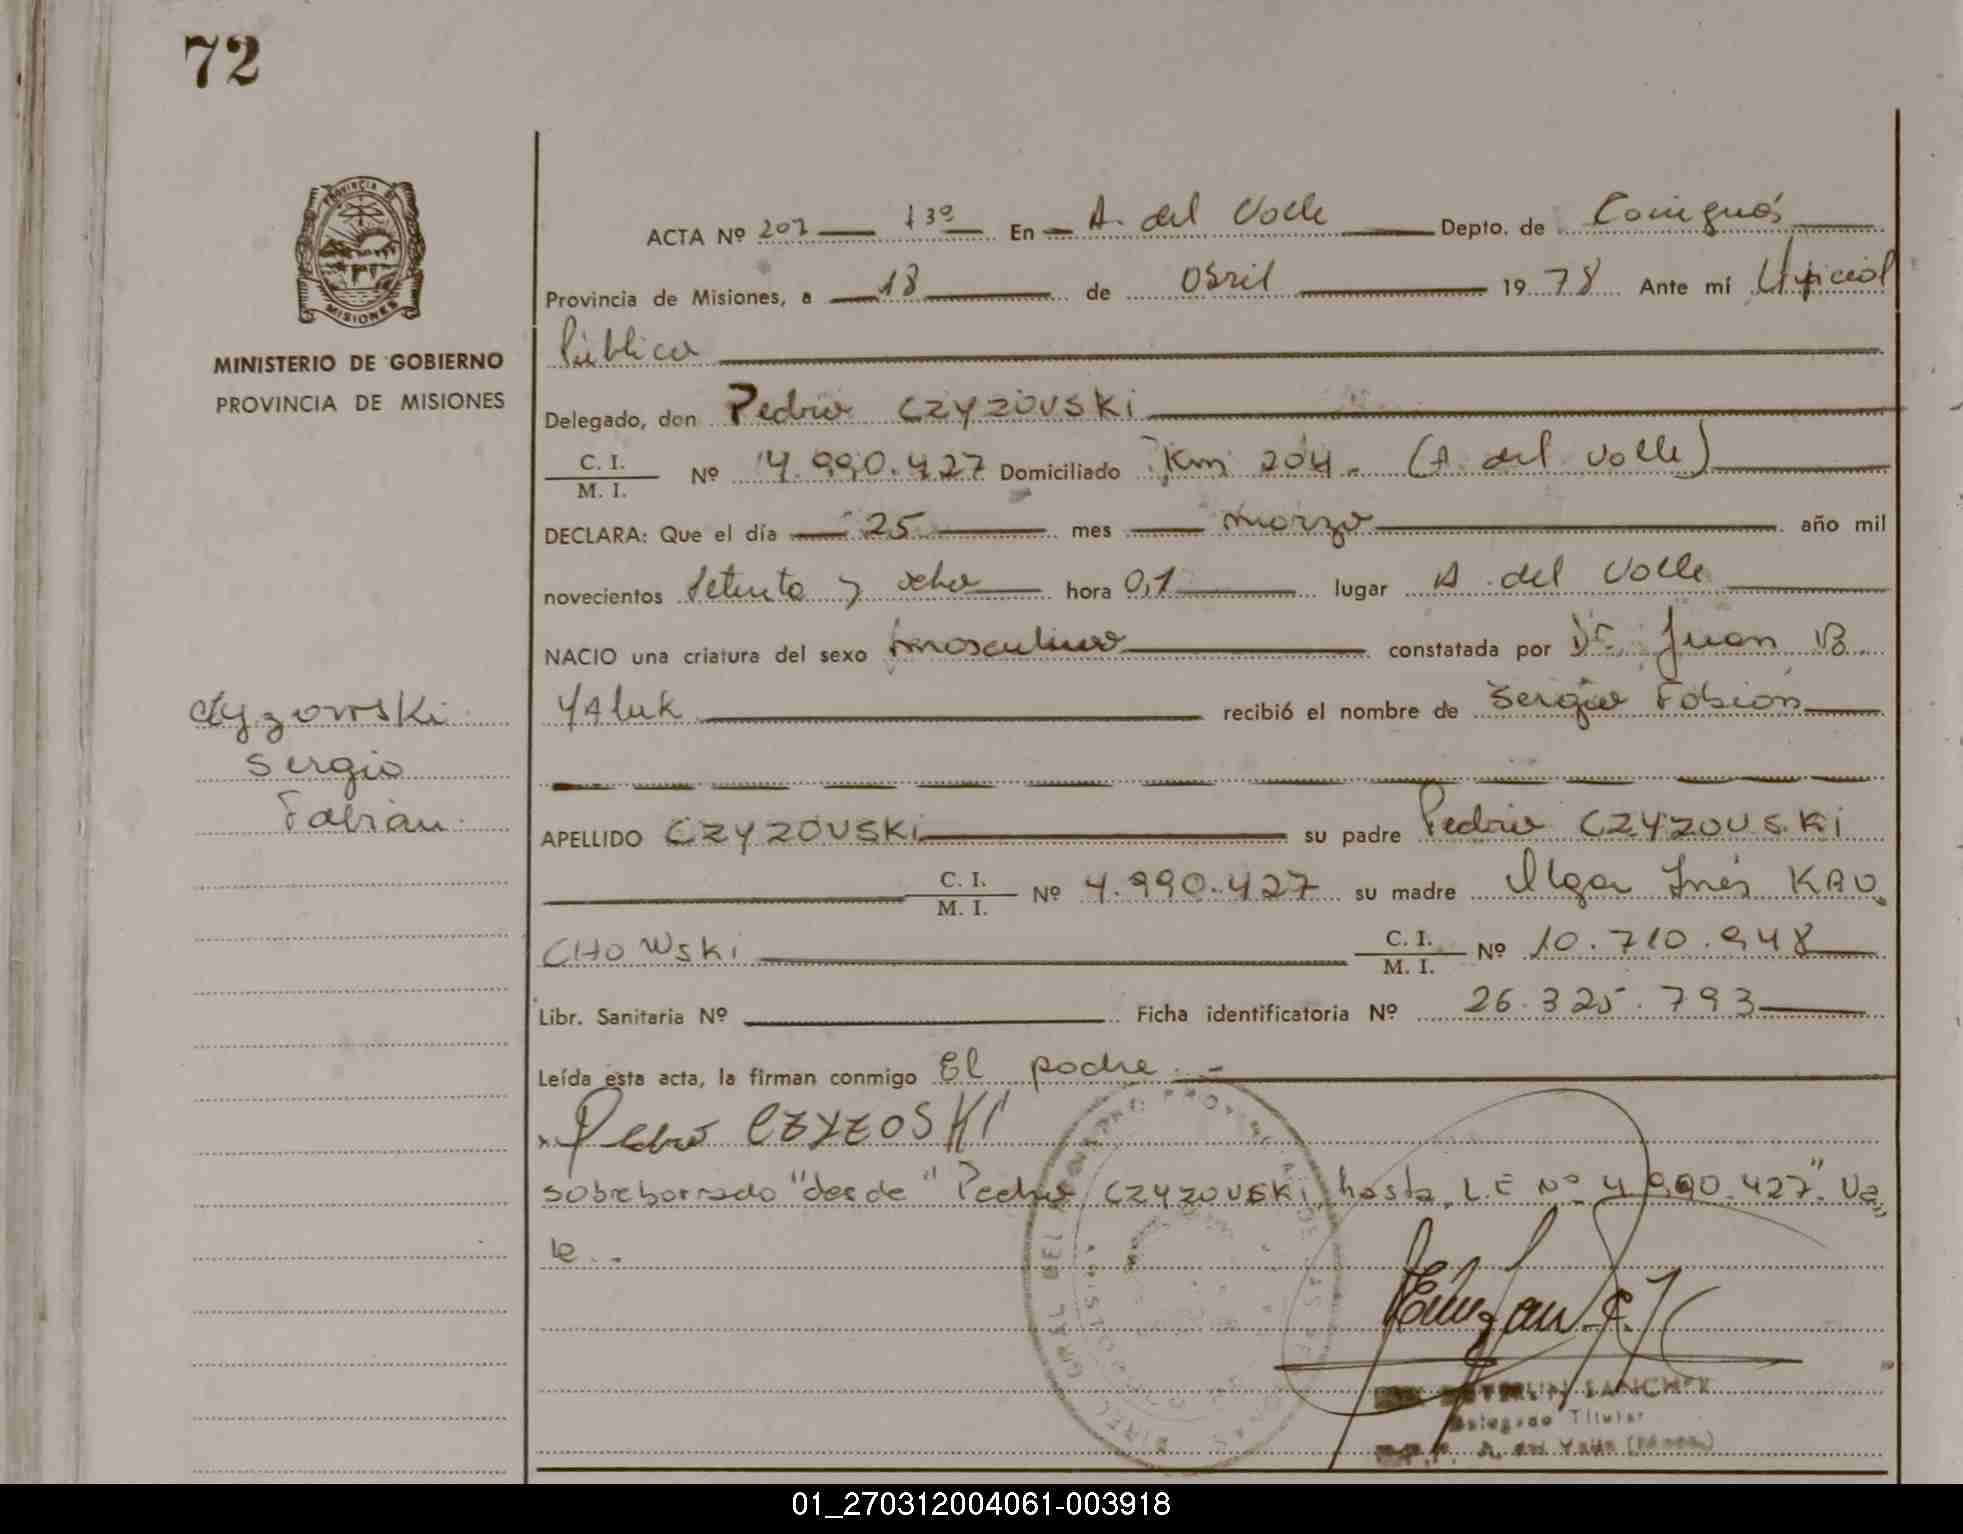 72
PROVINCIA DE
MISIONES
MINISTERIO DE GOBIERNO
PROVINCIA DE MISIONES
Czyzowski
Sergio
Fabian
ACTA Nº 207 13º En A. del Valle Depto. de Cainguás
Provincia de Misiones, a 18 de abril 19 78 Ante mí Oficial
Público
Delegado, don Pedro CZYZOVSKi
C. I. / M. I. Nº 4.990.427 Domiciliado Km 204. (A. del Valle)
DECLARA: Que el día 25 mes marzo año mil
novecientos setenta y ocho hora 0,1 lugar A. del Valle
NACIO una criatura del sexo masculino constatada por Dr. Juan B.
YAluk recibió el nombre de Sergio Fabián
APELLIDO CZYZOVSKi su padre Pedro CZYZOVSKi
C. I. / M. I. Nº 4.990.427 su madre Olga Inés KAU
CHOWSKi C. I. / M. I. Nº 10.710.948
Libr. Sanitaria Nº Ficha identificatoria Nº 26.325.793
Leída esta acta, la firman conmigo El padre.-
Pedro CZYZOSKI
sobreborrado "desde" Pedro CZYZOVSKi hasta L.E Nº 4.990.427". Va
le.-
SANCHEZ
Delegado Titular
A. del Valle
01_270312004061-003918